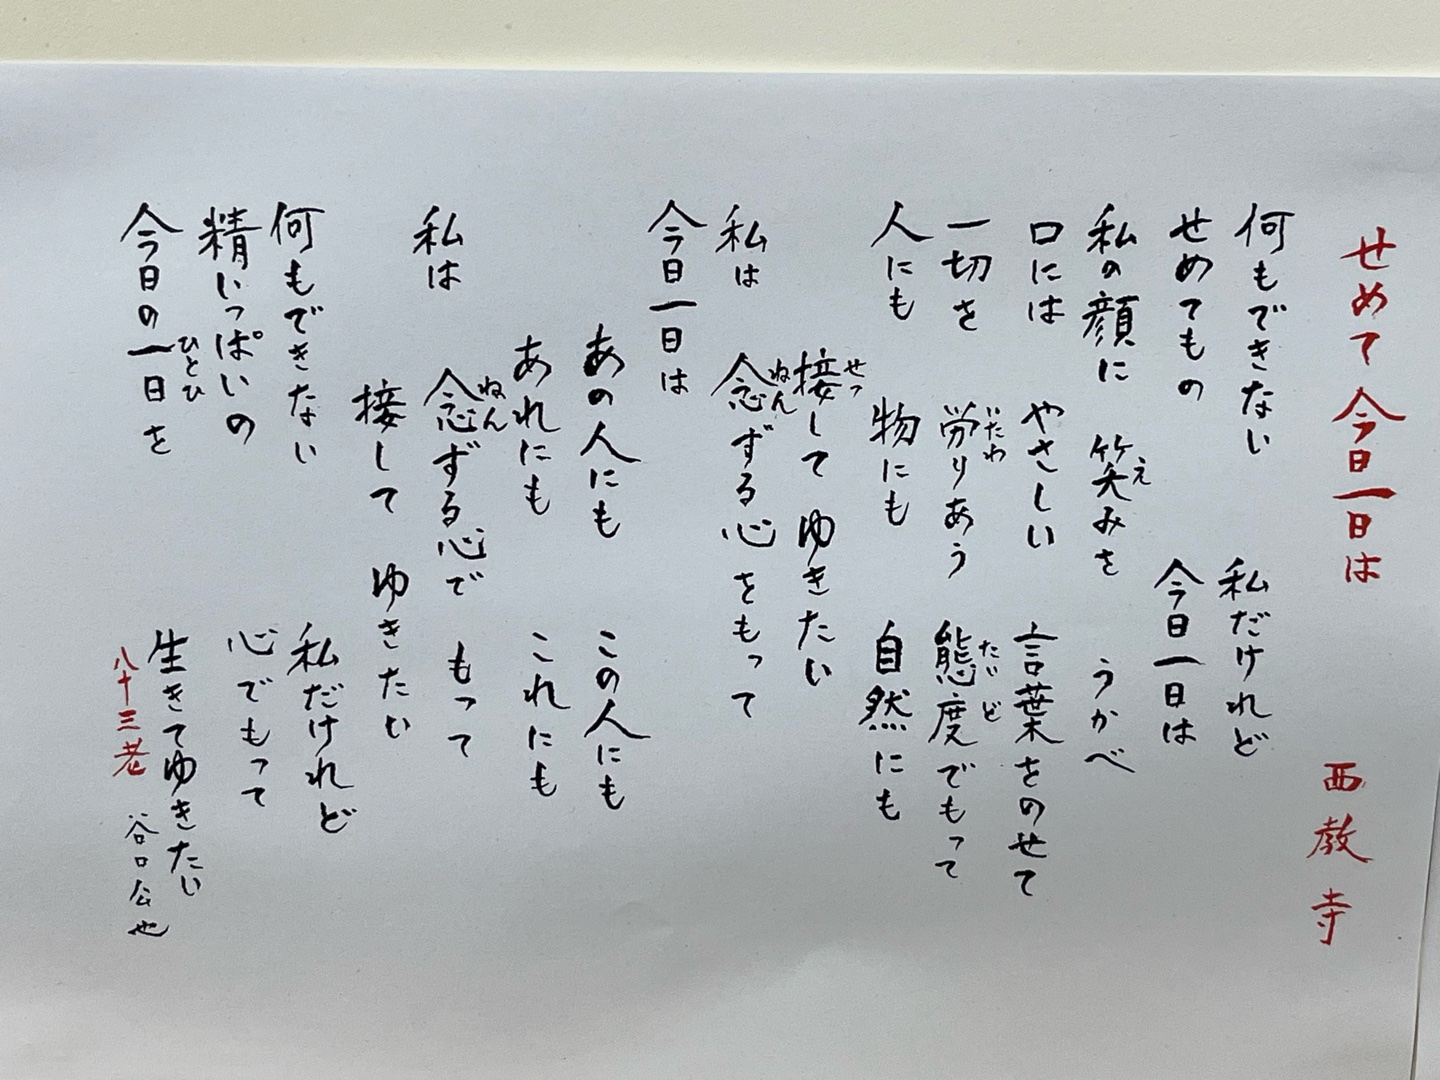 せめて今日一日は 西教寺
何もできない 私だけれど
せめてもの 今日一日は
私の顔に 笑みを うかべ
口には やさしい 言葉をのせて
一切を 労りあう 態度でもって
人にも 物にも 自然にも
接して ゆきたい
私は 念ずる心をもって
今日一日は
あの人にも この人にも
あれにも これにも
私は 念ずる心で もって
接して ゆきたい
何もできない 私だけれど
精いっぱいの 心でもって
今日の一日を 生きてゆきたい
八十三老 谷口公也
え
いたわ
たいど
せっ
ねん
ねん
ひとひ